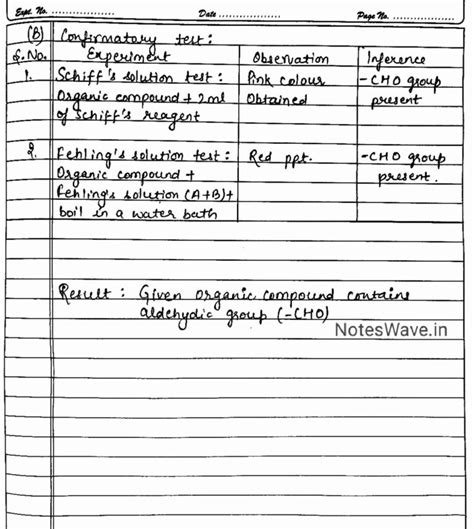 Expt. No. .................... Date .................... Page No. ....................
(B) Confirmatory test:
S.No. Experiment Observation Inference
1. Schiff's solution test: Pink colour -CHO group
Organic compound + 2ml Obtained present
of Schiff's reagent
2. Fehling's solution test: Red ppt. -CHO group
Organic compound + present.
Fehling's solution (A+B)+
boil in a water bath
Result : Given organic compound contains
aldehydic group (-CHO)
NotesWave.in